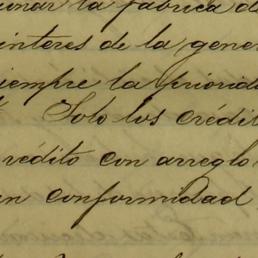 onar la fábrica de
interes de la gener
siempre la priorida
Solo los crédit
crédito con arreglo
en conformidad